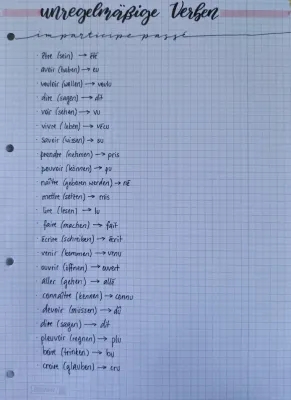 unregelmäßige Verben
im participe passé
· être (sein) → été
· avoir (haben) → eu
· vouloir (wollen) → voulu
· dire (sagen) → dit
· voir (sehen) → vu
· vivre (leben) → vécu
· savoir (wissen) → su
· prendre (nehmen) → pris
· pouvoir (können) → pu
· naître (geboren werden) → né
· mettre (setzen) → mis
· lire (lesen) → lu
· faire (machen) → fait
· écrire (schreiben) → écrit
· venir (kommen) → venu
· ouvrir (öffnen) → ouvert
· aller (gehen) → allé
· connaître (kennen) → connu
· devoir (müssen) → dû
· dire (sagen) → dit
· pleuvoir (regnen) → plu
· boire (trinken) → bu
· croire (glauben) → cru